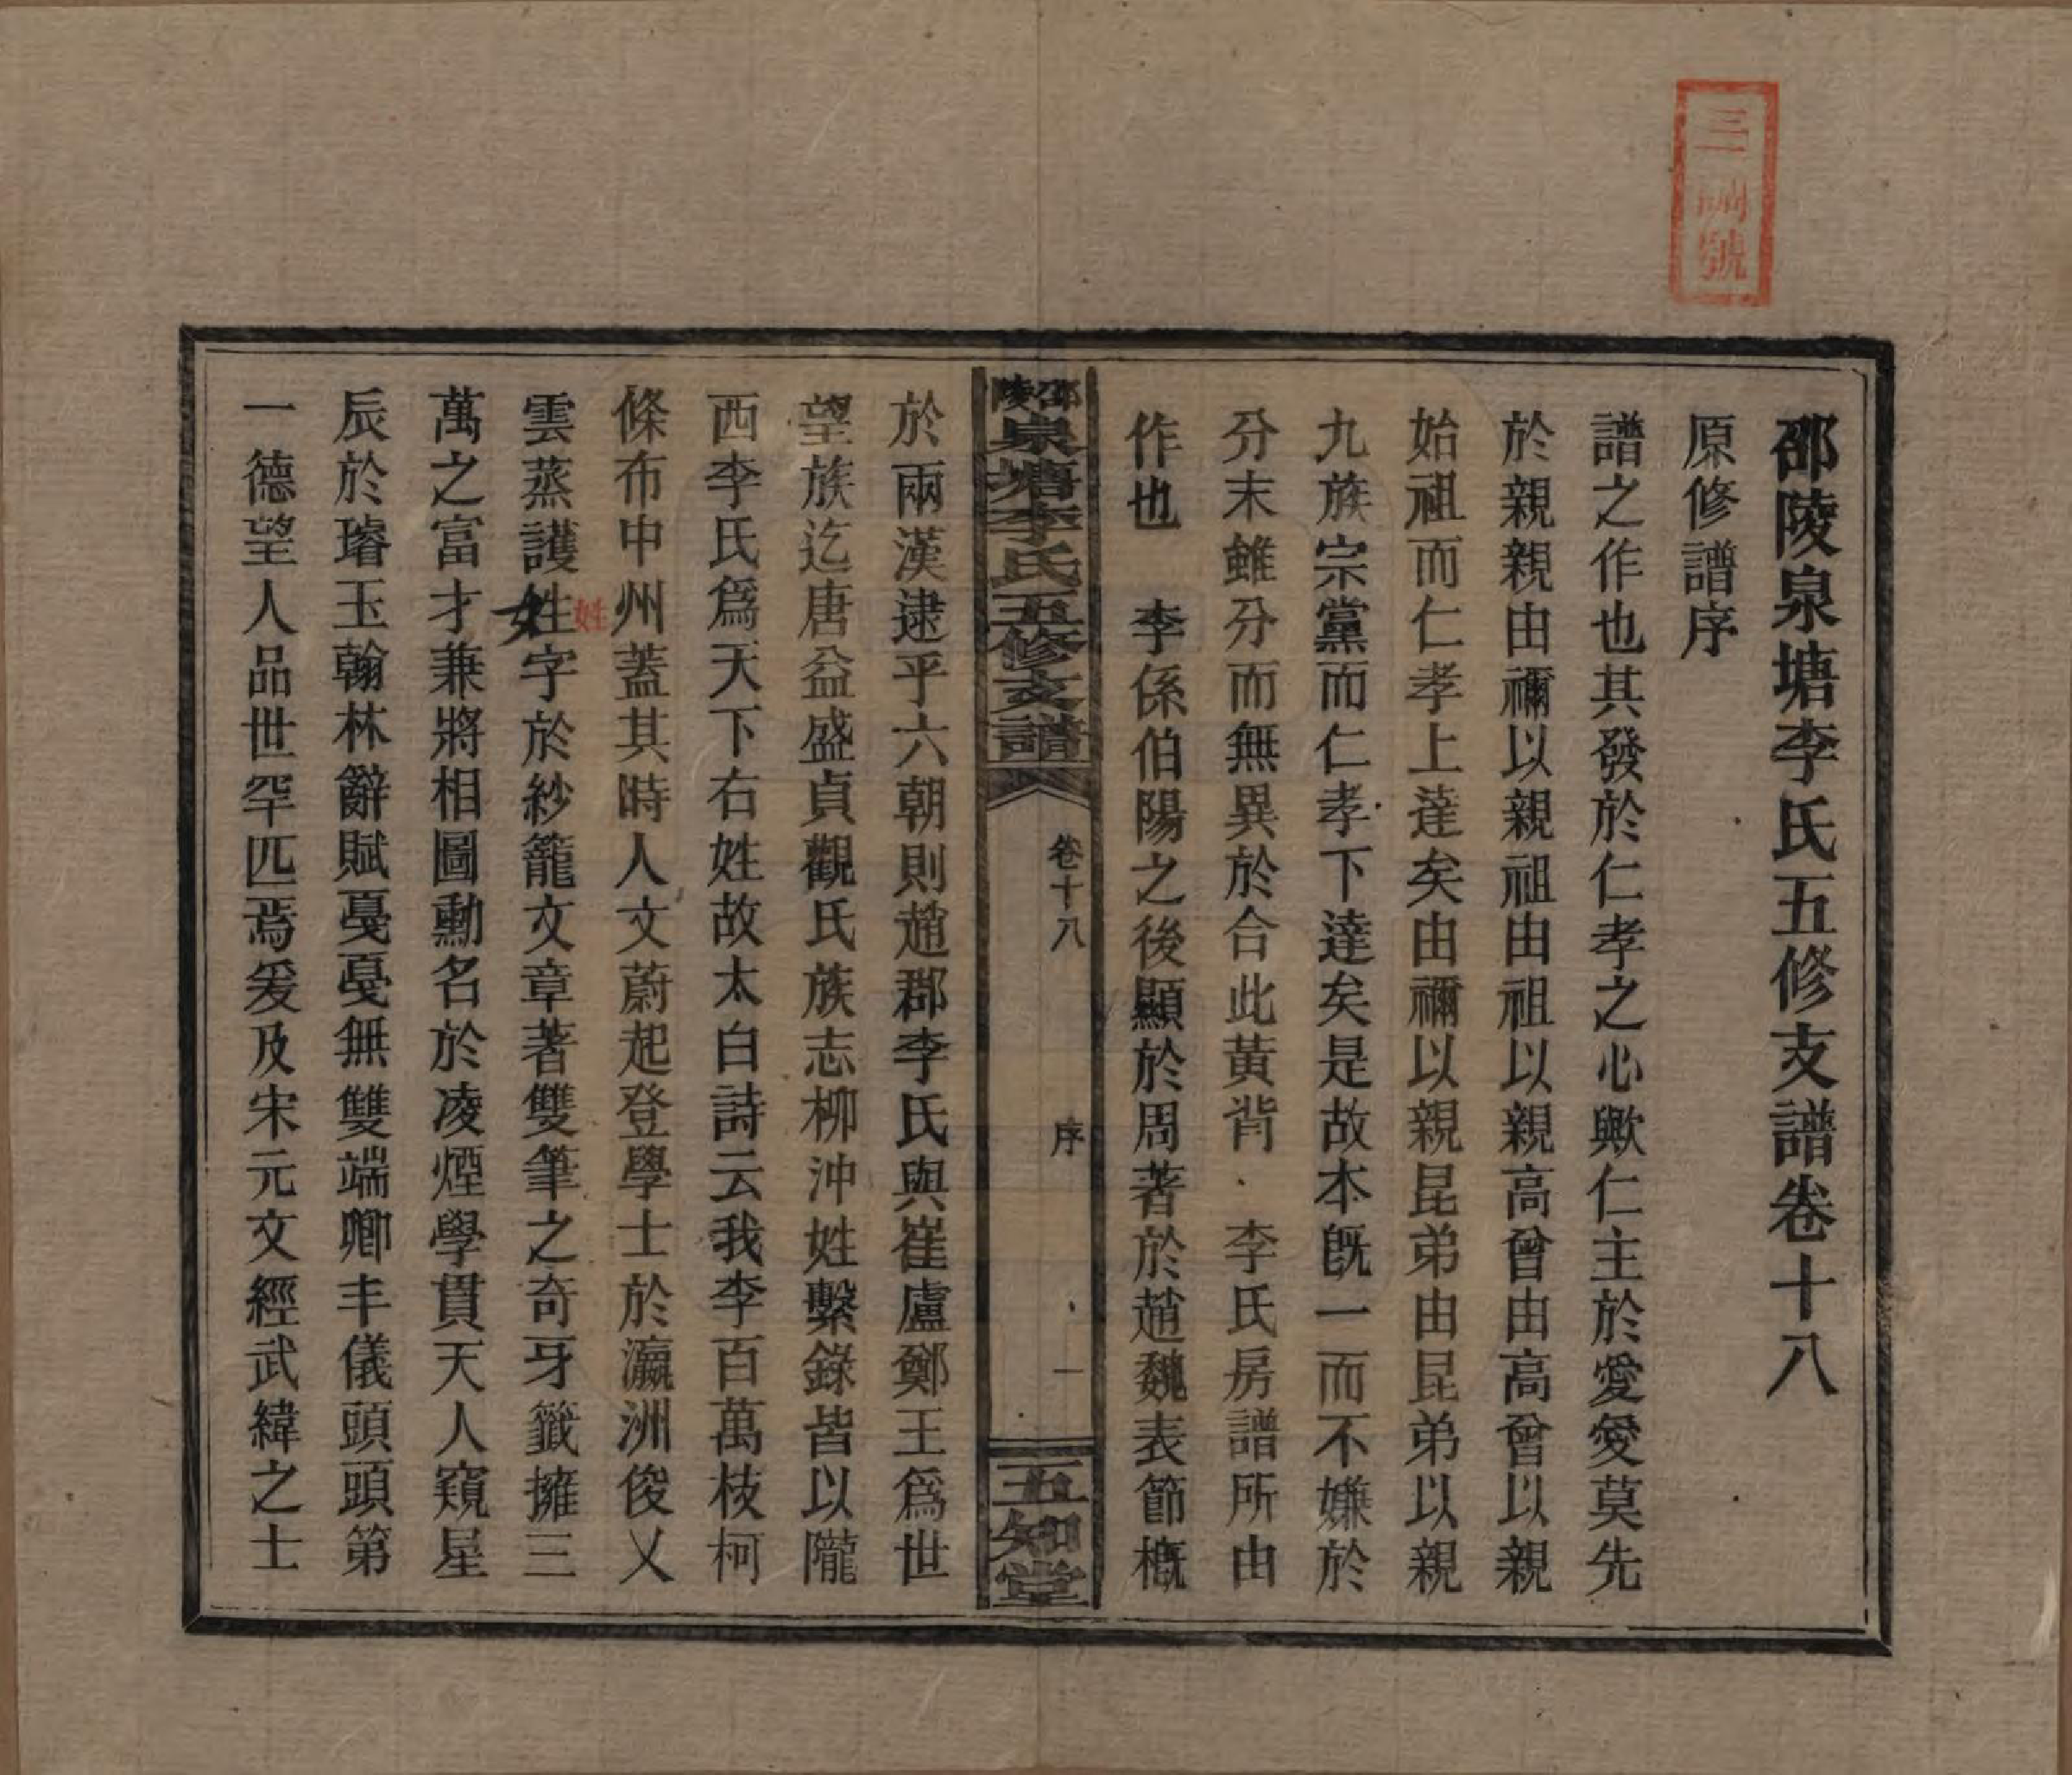 三 號
邵陵泉塘李氏五修支譜卷十八
原修譜序
譜之作也其發於仁孝之心歟仁主於愛愛莫先
於親親由禰以親祖由祖以親高曾由高曾以親
始祖而仁孝上達矣由禰以親昆弟由昆弟以親
九族宗黨而仁孝下達矣是故本旣一而不嫌於
分末雖分而無異於合此黃背 李氏房譜所由
作也 李係伯陽之後顯於周著於趙魏表節槪
邵陵泉塘李氏五修支譜 卷十八 序 一 五知堂
於兩漢逮乎六朝則趙郡李氏與崔盧鄭王爲世
望族迄唐益盛貞觀氏族志柳沖姓繫錄皆以隴
西李氏爲天下右姓故太白詩云我李百萬枝柯
條布中州蓋其時人文蔚起登學士於瀛洲俊乂
雲蒸護姓字於紗籠文章著雙筆之奇牙籤擁三
姓
女
萬之富才兼將相圖勳名於凌煙學貫天人窺星
辰於璿玉翰林辭賦戛戛無雙端卿丰儀頭頭第
一德望人品世罕匹焉爰及宋元文經武緯之士